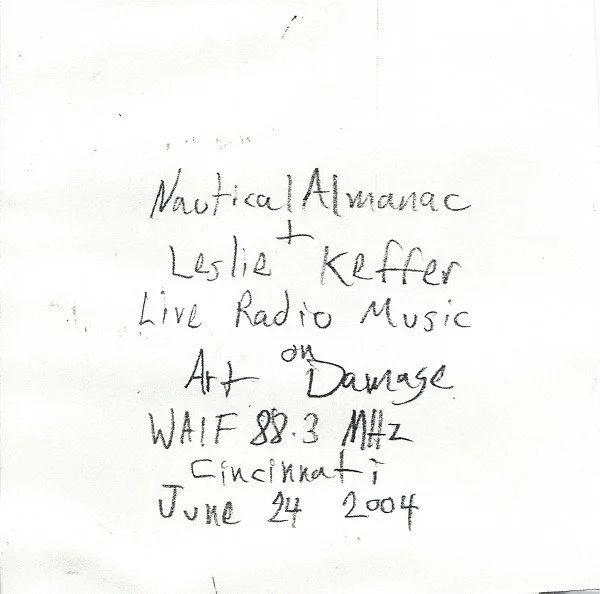 Nautical Almanac
+
Leslie Keffer
Live Radio Music
on
Art Damage
WAIF 88.3 MHz
Cincinnati
June 24 2004